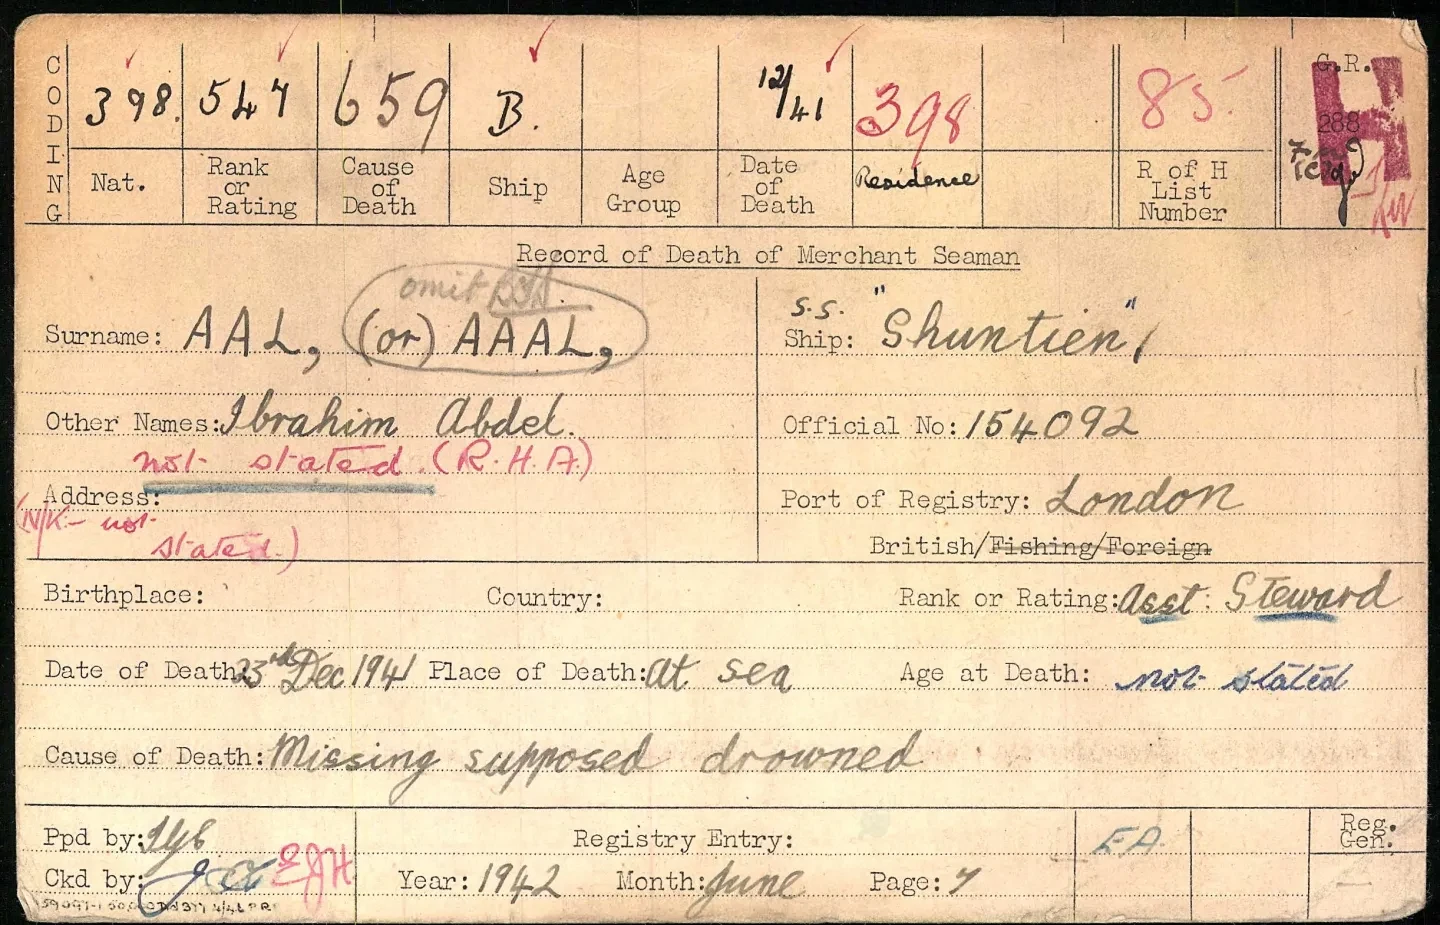 CODING
398. 547 659 B. 12/41 398 85
G.R.
288
Nat. Rank or Rating Cause of Death Ship Age Group Date of Death Residence R of H List Number
Record of Death of Merchant Seaman
omit
Surname: AAL, (or) AAAL,
s.s.
Ship: "Shuntien",
Other Names: Ibrahim Abdel.
Official No: 154092
not stated. (R.H.A)
Address:
(N/K - not stated.)
Port of Registry: London
British/Fishing/Foreign
Birthplace: Country: Rank or Rating: Asst. Steward
Date of Death: 23rd Dec 1941 Place of Death: At sea Age at Death: not stated
Cause of Death: Missing supposed drowned
Ppd by: Registry Entry: EA Reg. Gen.
Ckd by: EJH Year: 1942 Month: June Page: 7